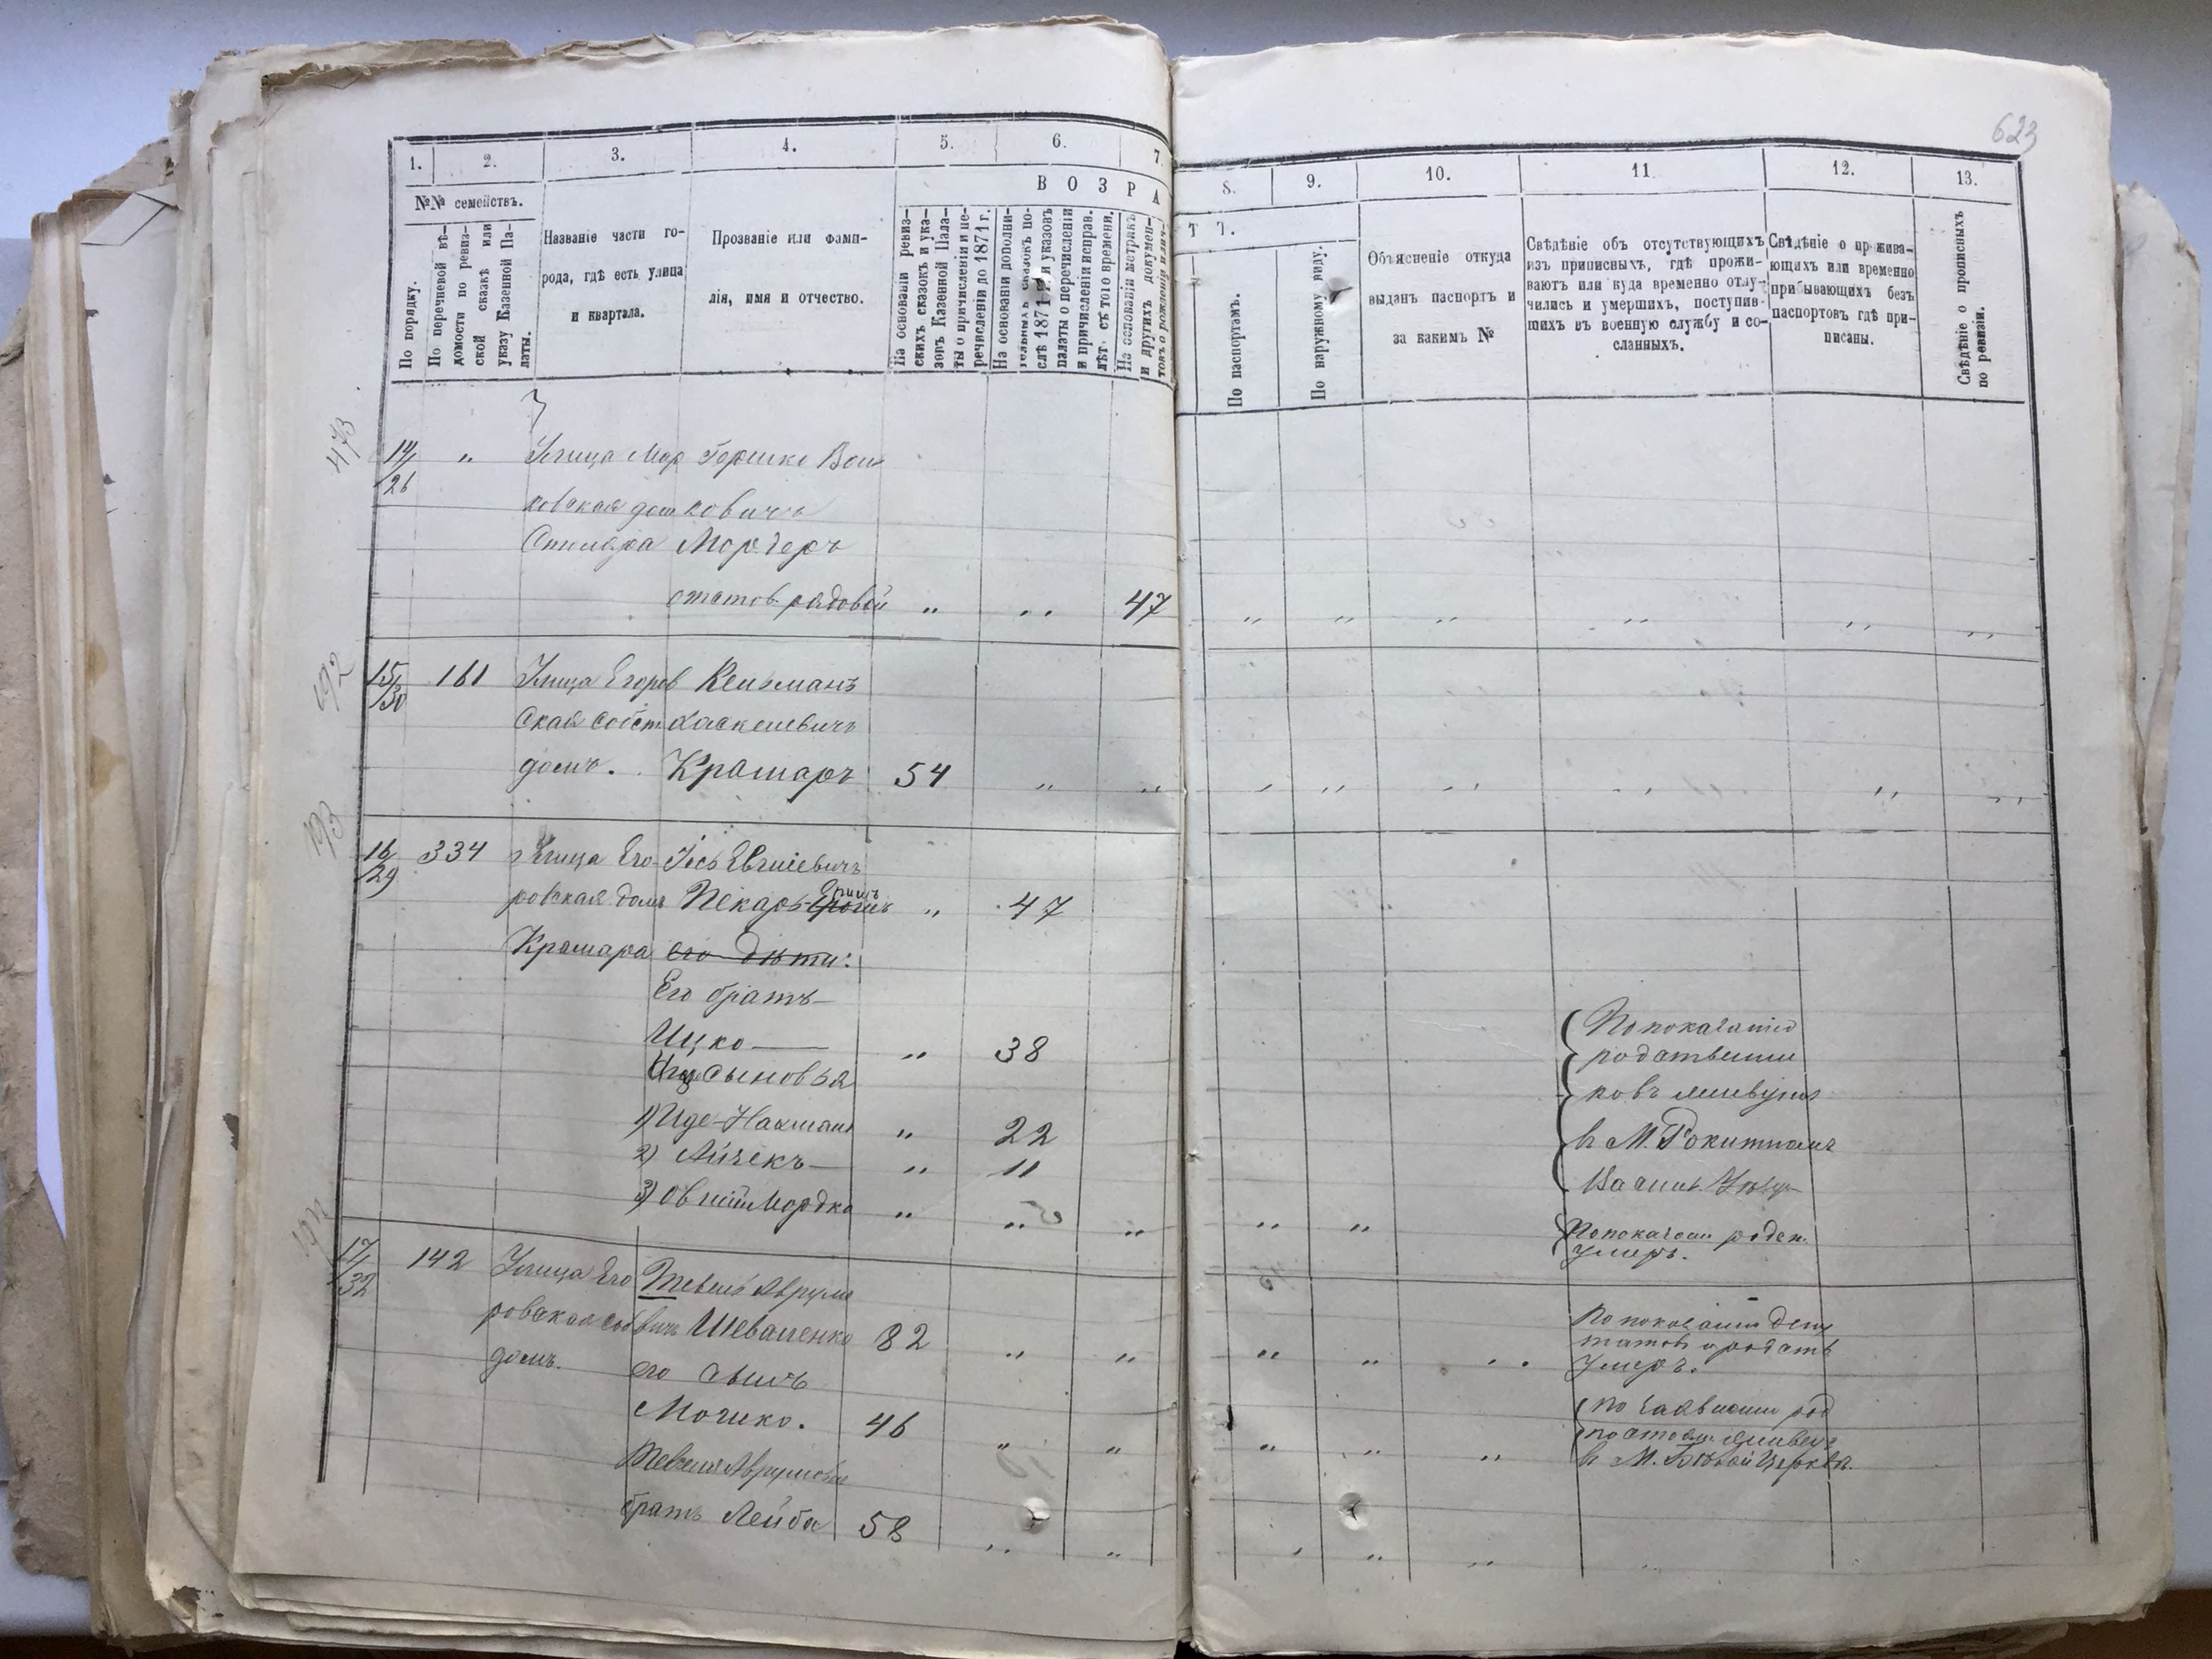 623
1. 2. 3. 4. 5. 6. 7.
8. 9. 10. 11. 12. 13.
В О З Р А
Т Ъ.
№№ семействъ.
По порядку.
По перечневой вѣ-
домости по ревиз-
ской сказкѣ или
указу Казенной Па-
латы.
Названіе части го-
рода, гдѣ есть улица
и квартала.
Прозваніе или фами-
лія, имя и отчество.
На основаніи ревиз-
скихъ сказокъ и ука-
зовъ Казенной Пала-
ты о причисленіи и пе-
речисленіи до 1871 г.
На основаніи дополни-
тельныхъ сказокъ по-
слѣ 1871 г. и указовъ
палаты о перечисленіи
и причисленіи исправ.
лѣт. съ того времени.
На основаніи метрикъ
и другихъ докумен-
товъ о рожденіи
По паспортамъ.
По наружному виду.
Объясненіе откуда
выданъ паспортъ и
за какимъ №
Свѣдѣніе объ отсутствующихъ
изъ приписныхъ, гдѣ прожи-
ваютъ или куда временно отлу-
чились и умершихъ, поступив-
шихъ въ военную службу и со-
сланныхъ.
Свѣдѣніе о прожива-
ющихъ или временно
прибывающихъ безъ
паспортовъ гдѣ при-
писаны.
Свѣдѣніе о прописныхъ
по ревизіи.
473
14/26 „ Улица Мар Гершко Вол
ковская дом ковичъ
Столяра Мордеръ
отстав. рядовой „ „ 47 „ „ „ „ „ „
192
15/30 161 Улица Егоров Кельманъ
ская собст Хаскелевичъ
домъ. Крамаръ 54 „ „ „ „ „ „ „ „
193
16/29 334 Улица Его Іось Евгшіевичъ
ровская домъ Пекарь „ 47
Крамара его дѣти:
Его братъ
Ицко — „ 38
сыновья
1) Иде-Нахман „ 22
2) Айзекъ — „ 11
3) Мордко „ „ „ „ „
По показанію
родственни
ковъ живутъ
въ М. Рокитномъ
Васильк. Уѣзд.
По показан родст.
Умеръ.
17/32 142 Улица Его Тевель Аврумо
ровская соб вичъ Шевченко 82 „ „ „ „ „
домъ. его сынъ
Мошко. 46 „ „ „ „ „
Тевеля Аврумова
братъ Лейба 58 „ „ „ „ „ „
По показанію депу
татовъ и родств
Умеръ.
По заявленію род
живетъ
въ М. Бѣлой Церкви.